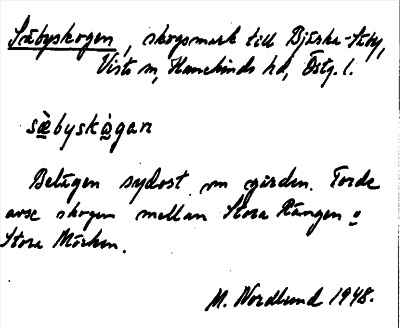 Säbyskogen, skogsmark till Bjärka-Säby,
Vists sn, Hanekinds hd, Östg. l.
sæ̀byskò̤gan
Belägen sydost om gården. Torde
avse skogen mellan Stora Rängen o
Stora Mörken.
M. Nordlund 1948.